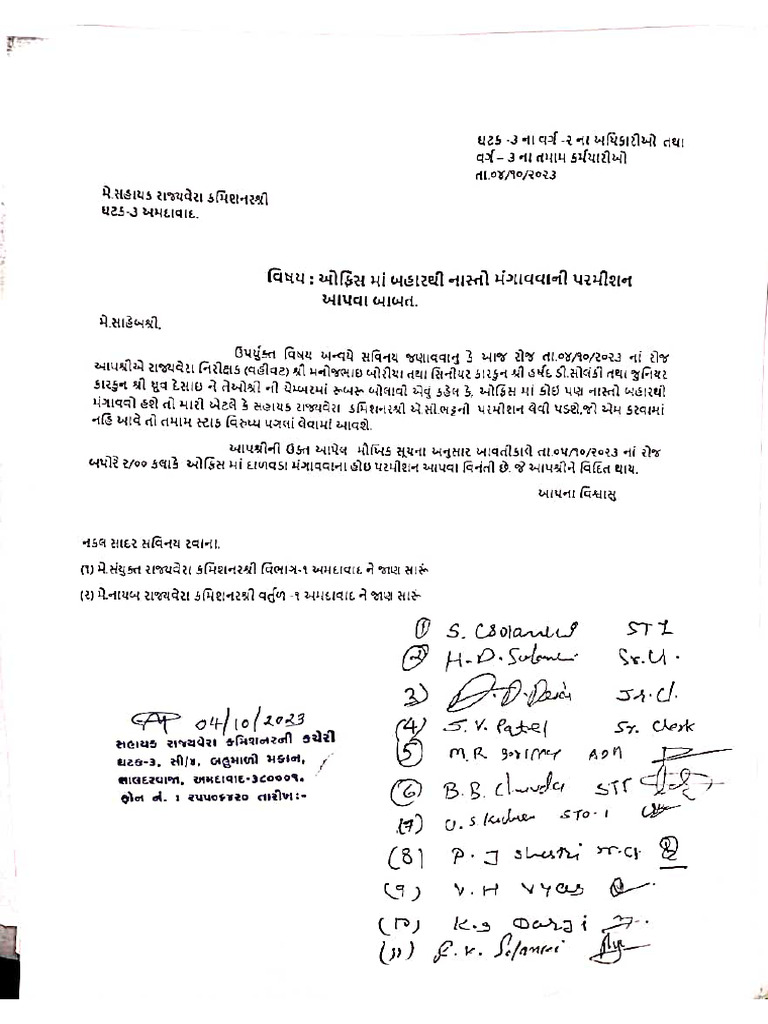 ઘટક -૩ ના વર્ગ -૨ ના અધિકારીઓ તથા
વર્ગ – ૩ ના તમામ કર્મચારીઓ
તા.૦૪/૧૦/૨૦૨૩
મે.સહાયક રાજ્યવેરા કમિશનરશ્રી
ઘટક-૩ અમદાવાદ.
વિષય : ઓફિસ માં બહારથી નાસ્તો મંગાવવાની પરમીશન
આપવા બાબત.
મે.સાહેબશ્રી.
ઉપર્યુક્ત વિષય અન્વયે સવિનય જણાવવાનુ કે આજ રોજ તા.૦૪/૧૦/૨૦૨૩ નાં રોજ
આપશ્રીએ રાજ્યવેરા નિરીક્ષક (વહીવટ) શ્રી મનોજભાઇ બોરીયા તથા સિનીયર કારકુન શ્રી હર્ષદ ડી.સોલંકી તથા જુનિયર
કારકુન શ્રી ધ્રુવ દેસાઇ ને તેઓશ્રી ની ચેમ્બરમાં રૂબરૂ બોલાવી એવું કહેલ કે, ઓફિસ માં કોઇ પણ નાસ્તો બહારથી
મંગાવવો હશે તો મારી એટલે કે સહાયક રાજ્યવેરા કમિશનરશ્રી એ.સી.ભટ્ટની પરમીશન લેવી પડશે.જો એમ કરવામાં
નહિ આવે તો તમામ સ્ટાફ વિરુધ્ધ પગલાં લેવામાં આવશે.
આપશ્રીની ઉક્ત આપેલ મૌખિક સૂચના અનુસાર આવતીકાલે તા.૦૫/૧૦/૨૦૨૩ નાં રોજ
બપોરે ૨/૦૦ કલાકે ઓફિસ માં દાળવડા મંગાવવાના હોઇ પરમીશન આપવા વિનંતી છે. જે આપશ્રીને વિદિત થાય.
આપના વિશ્વાસુ
નકલ સાદર સવિનય રવાના.
(૧) મે.સંયુક્ત રાજ્યવેરા કમિશનરશ્રી વિભાગ-૧ અમદાવાદ ને જાણ સારૂં
(૨) મે.નાયબ રાજ્યવેરા કમિશનરશ્રી વર્તુળ -૧ અમદાવાદ ને જાણ સારૂં
① S. STI
② H.D. Solanki Sr.Cl.
3) D.D. Desai Jr.Cl.
(4) J.V. Patel Sr. Clerk
04/10/2023
સહાયક રાજ્યવેરા કમિશનરની કચેરી
ઘટક-૩, સી/૪, બહુમાળી મકાન,
લાલદરવાજા, અમદાવાદ-૩૮૦૦૦૧.
ફોન નં. : ૨૫૫૦૬૪૨૦ તારીખ:-
(5) M.R ADM
(6) B.B. Chavda STI
(7) STO-1
(8) P.J Shastri
(9) V.H Vyas
(10) K.G Darji
(11) Solanki